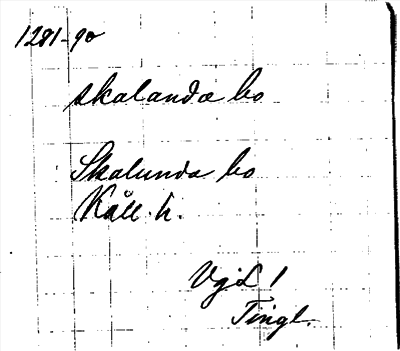 1281-90
skalanda bo
Skalunda bo
Kåll. h.
VgL 1
Tingl.